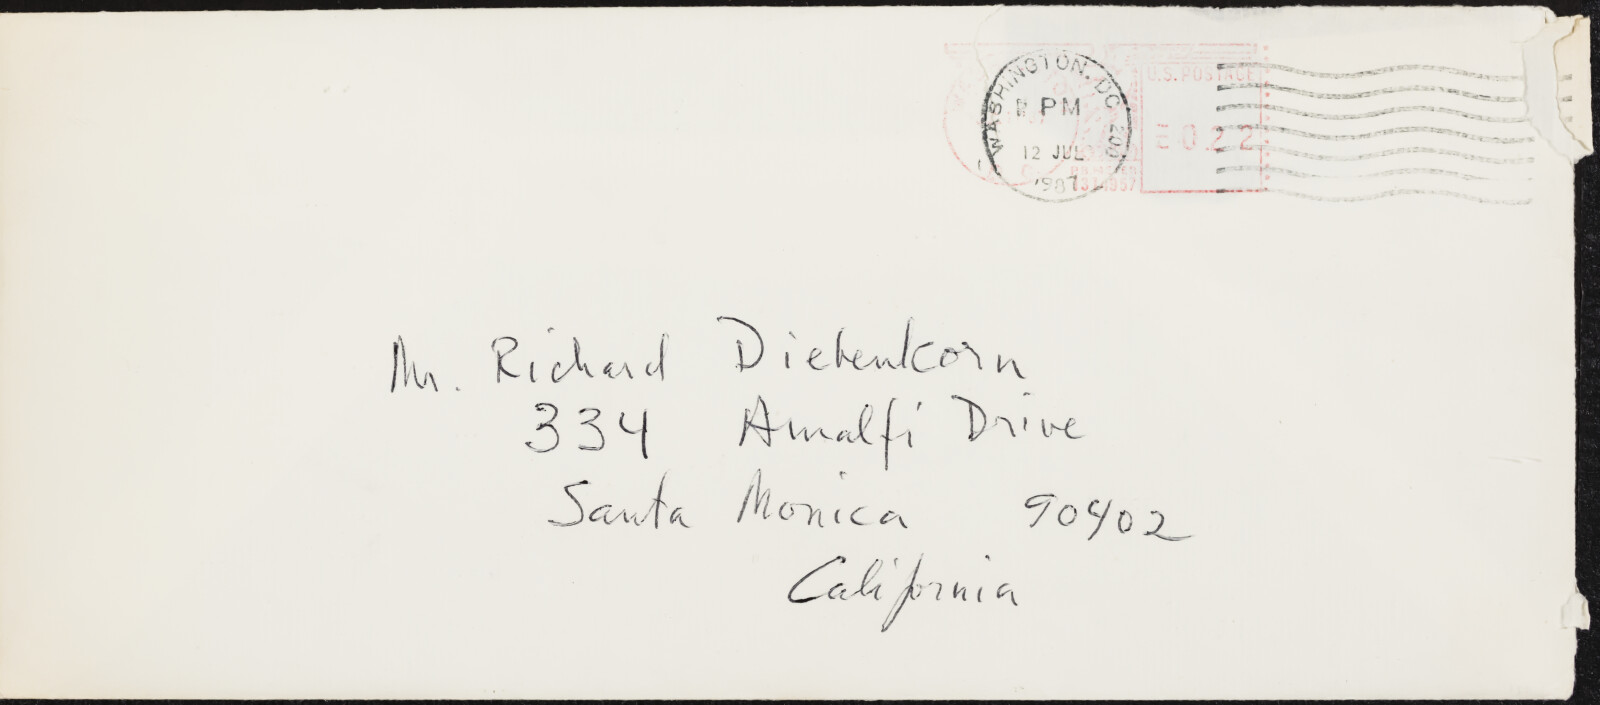 WASHINGTON, DC 200
PM
12 JUL
1987
U.S. POSTAGE
0.22
Mr. Richard Diebenkorn
334 Amalfi Drive
Santa Monica 90402
California